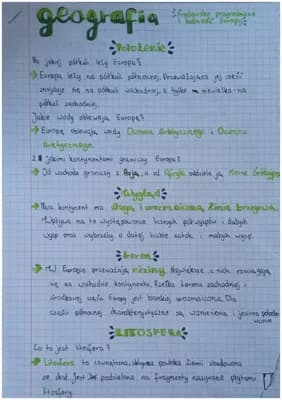 geografia
Środowisko przyrodnicze i ludność Europy
Położenie
Na jakiej półkuli leży Europa?
→ Europa leży na półkuli północnej. Przeważająca jej część
znajduje się na półkuli wschodniej, a tylko niewielka na
półkuli zachodniej.
Jakie wody oblewają Europę?
→ Europę oblewają wody Oceanu Atlantyckiego i Oceanu
Arktycznego.
Z jakimi kontynentami graniczy Europa?
→ Od wschodu graniczy z Azją, a od Afryki oddziela ją Morze Śródziemne
Wygląd
→ Nasz kontynent ma długą i urozmaiconą linię brzegową.
Wpływa na to występowanie licznych półwyspów i dużych
wysp oraz wybrzeży o dużej liczbie zatok i małych wysp.
Teren
→ W Europie przeważają niziny. Największe z nich rozciągają
się na wschodzie kontynentu. Rzeźba terenu zachodniej i
środkowej części Europy jest bardziej urozmaicona. Dla
części północnej charakterystyczne są wzniesienia i jeziora polodo-
wcowe
LITOSFERA
Co to jest litosfera?
→ Litosfera to zewnętrzna, sztywna powłoka Ziemi zbudowana
ze skał. Jest podzielona na fragmenty nazywane płytami
litosfery.